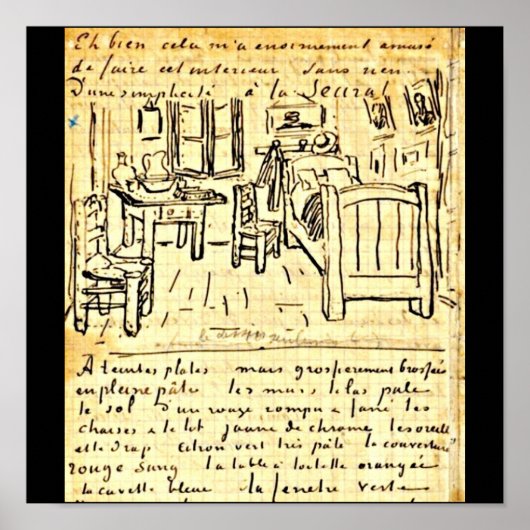 Eh bien cela m'a enormement amusé
de faire cet interieur sans rien
D'une simplicité à la Seurat
A teintes plates mais grossierement brossées
en pleine pâte les murs lilas pale
le sol d'un rouge rompu & fané les
chaises & le lit jaune de chrome les oreill
et le drap citron vert très pâle la couverture
rouge sang la table à toilette orangée
la cuvette bleue la fenetre verte